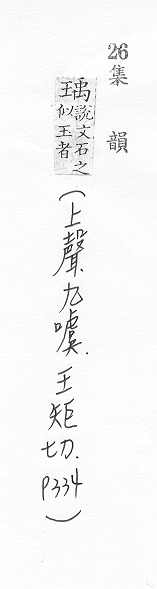 26集韻
瑀說文石之
似王者
(上聲.九噳.王矩切.P334)